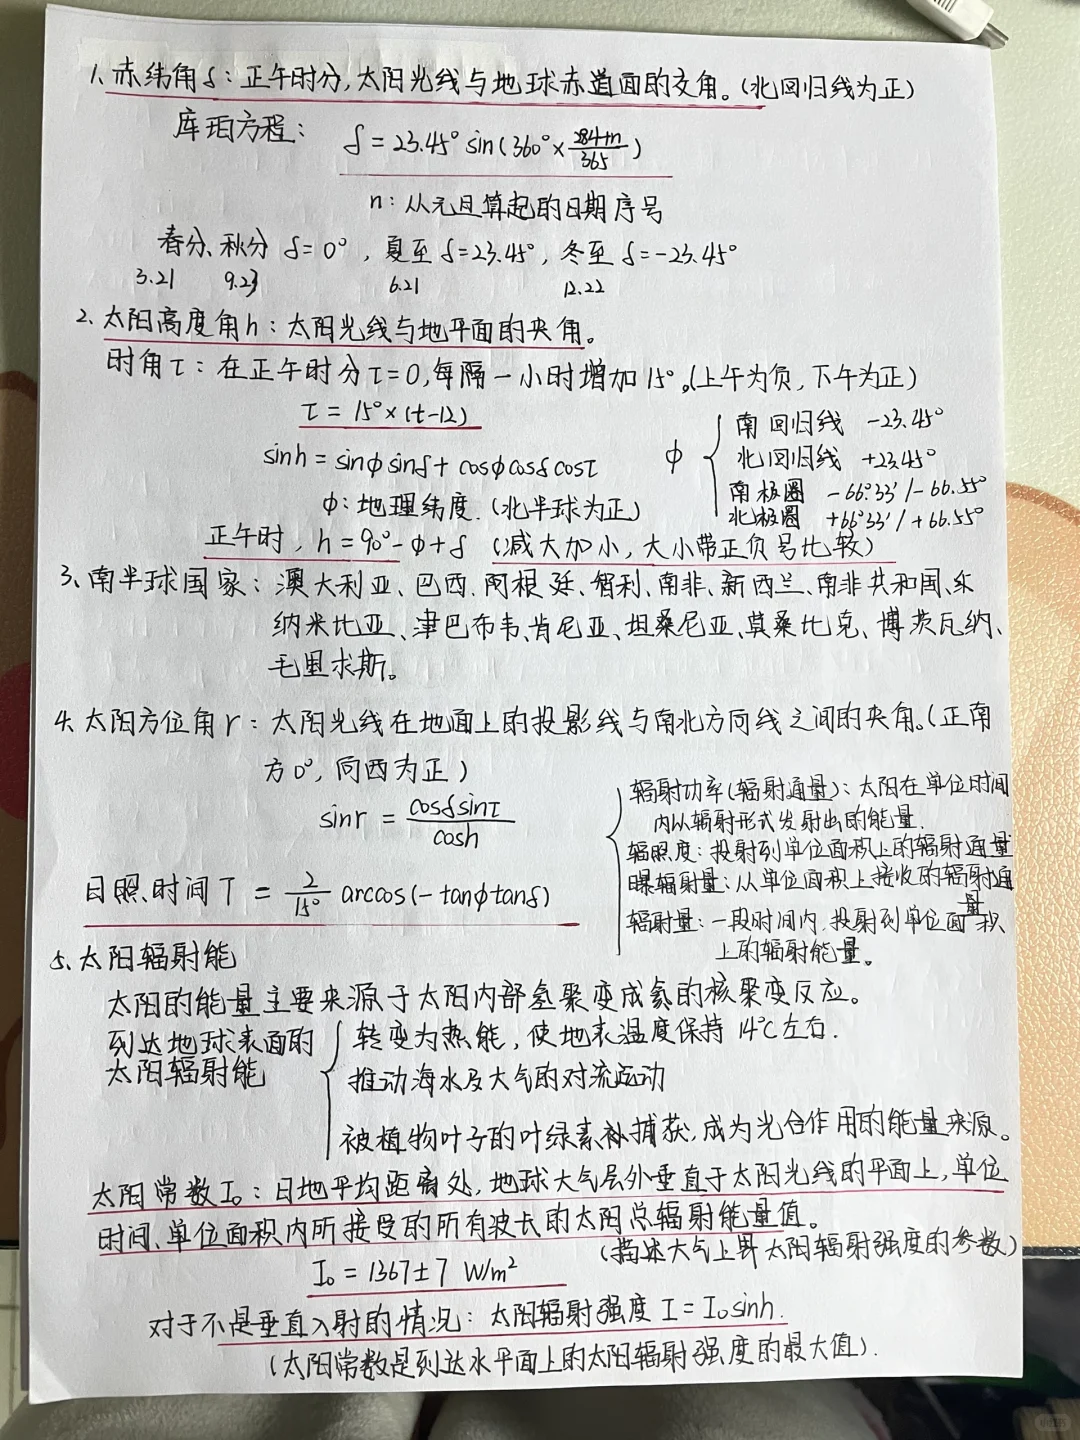 1. 赤纬角δ：正午时分，太阳光线与地球赤道面的交角。（北回归线为正）
库珀方程：δ = 23.45° sin(360° × (284+n)/365)
n：从元旦算起的日期序号
春分、秋分 δ = 0°，夏至 δ = 23.45°，冬至 δ = -23.45°
3.21 9.23 6.21 12.22
2、太阳高度角h：太阳光线与地平面的夹角。
时角τ：在正午时分τ=0，每隔一小时增加15°。（上午为负，下午为正）
τ = 15° × (t-12)
sinh = sinφsinδ + cosφcosδcosτ
φ：地理纬度.（北半球为正）
φ { 南回归线 -23.45°
北回归线 +23.45°
南极圈 -66°33′/-66.55°
北极圈 +66°33′/+66.55°
正午时，h = 90° - φ + δ （减大加小，大小带正负号比较）
3、南半球国家：澳大利亚、巴西、阿根廷、智利、南非、新西兰、南非共和国、
纳米比亚、津巴布韦、肯尼亚、坦桑尼亚、莫桑比克、博茨瓦纳、
毛里求斯。
4. 太阳方位角r：太阳光线在地面上的投影线与南北方向线之间的夹角。（正南
方0°，向西为正）
sinr = cosδsinτ/cosh
日照时间T = 2/15° arccos(-tanφtanδ)
辐射功率（辐射通量）：太阳在单位时间
内以辐射形式发射出的能量.
辐照度：投射到单位面积上的辐射通量
曝辐射量：从单位面积上接收的辐射通
量
辐射量：一段时间内，投射到单位面积
上的辐射能量。
5、太阳辐射能
太阳的能量主要来源于太阳内部氢聚变成氦的核聚变反应。
到达地球表面的
太阳辐射能
{ 转变为热能，使地表温度保持14℃左右.
推动海水及大气的对流运动
被植物叶子的叶绿素捕获，成为光合作用的能量来源。
太阳常数I₀：日地平均距离处，地球大气层外垂直于太阳光线的平面上，单位
时间、单位面积内所接受的所有波长的太阳总辐射能量值。
（描述大气上界太阳辐射强度的参数）
I₀ = 1367±7 W/m²
对于不是垂直入射的情况：太阳辐射强度 I = I₀sinh.
（太阳常数是到达水平面上的太阳辐射强度的最大值）.
小红书